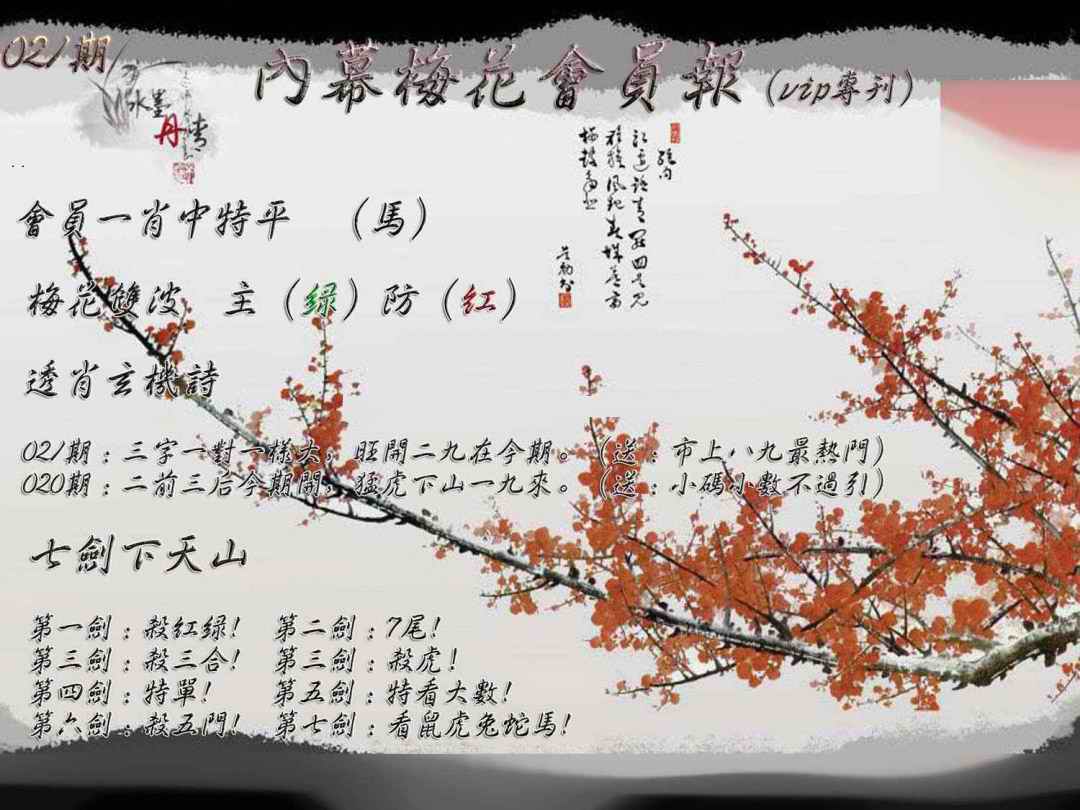 021期
內幕梅花會員報(vip專刊)
水墨
丹青
會員一肖中特平 (馬)
梅花雙波 主(绿)防(紅)
透肖玄機詩
021期:三字一對一樣大,旺開二九在今期。(送:市上八九最熱門)
020期:二前三后今期開,猛虎下山一九來。(送:小碼小數不過引)
七劍下天山
第一劍:殺紅绿! 第二劍:7尾!
第三劍:殺三合! 第三劍:殺虎!
第四劍:特單! 第五劍:特看大數!
第六劍:殺五門! 第七劍:看鼠虎兔蛇馬!